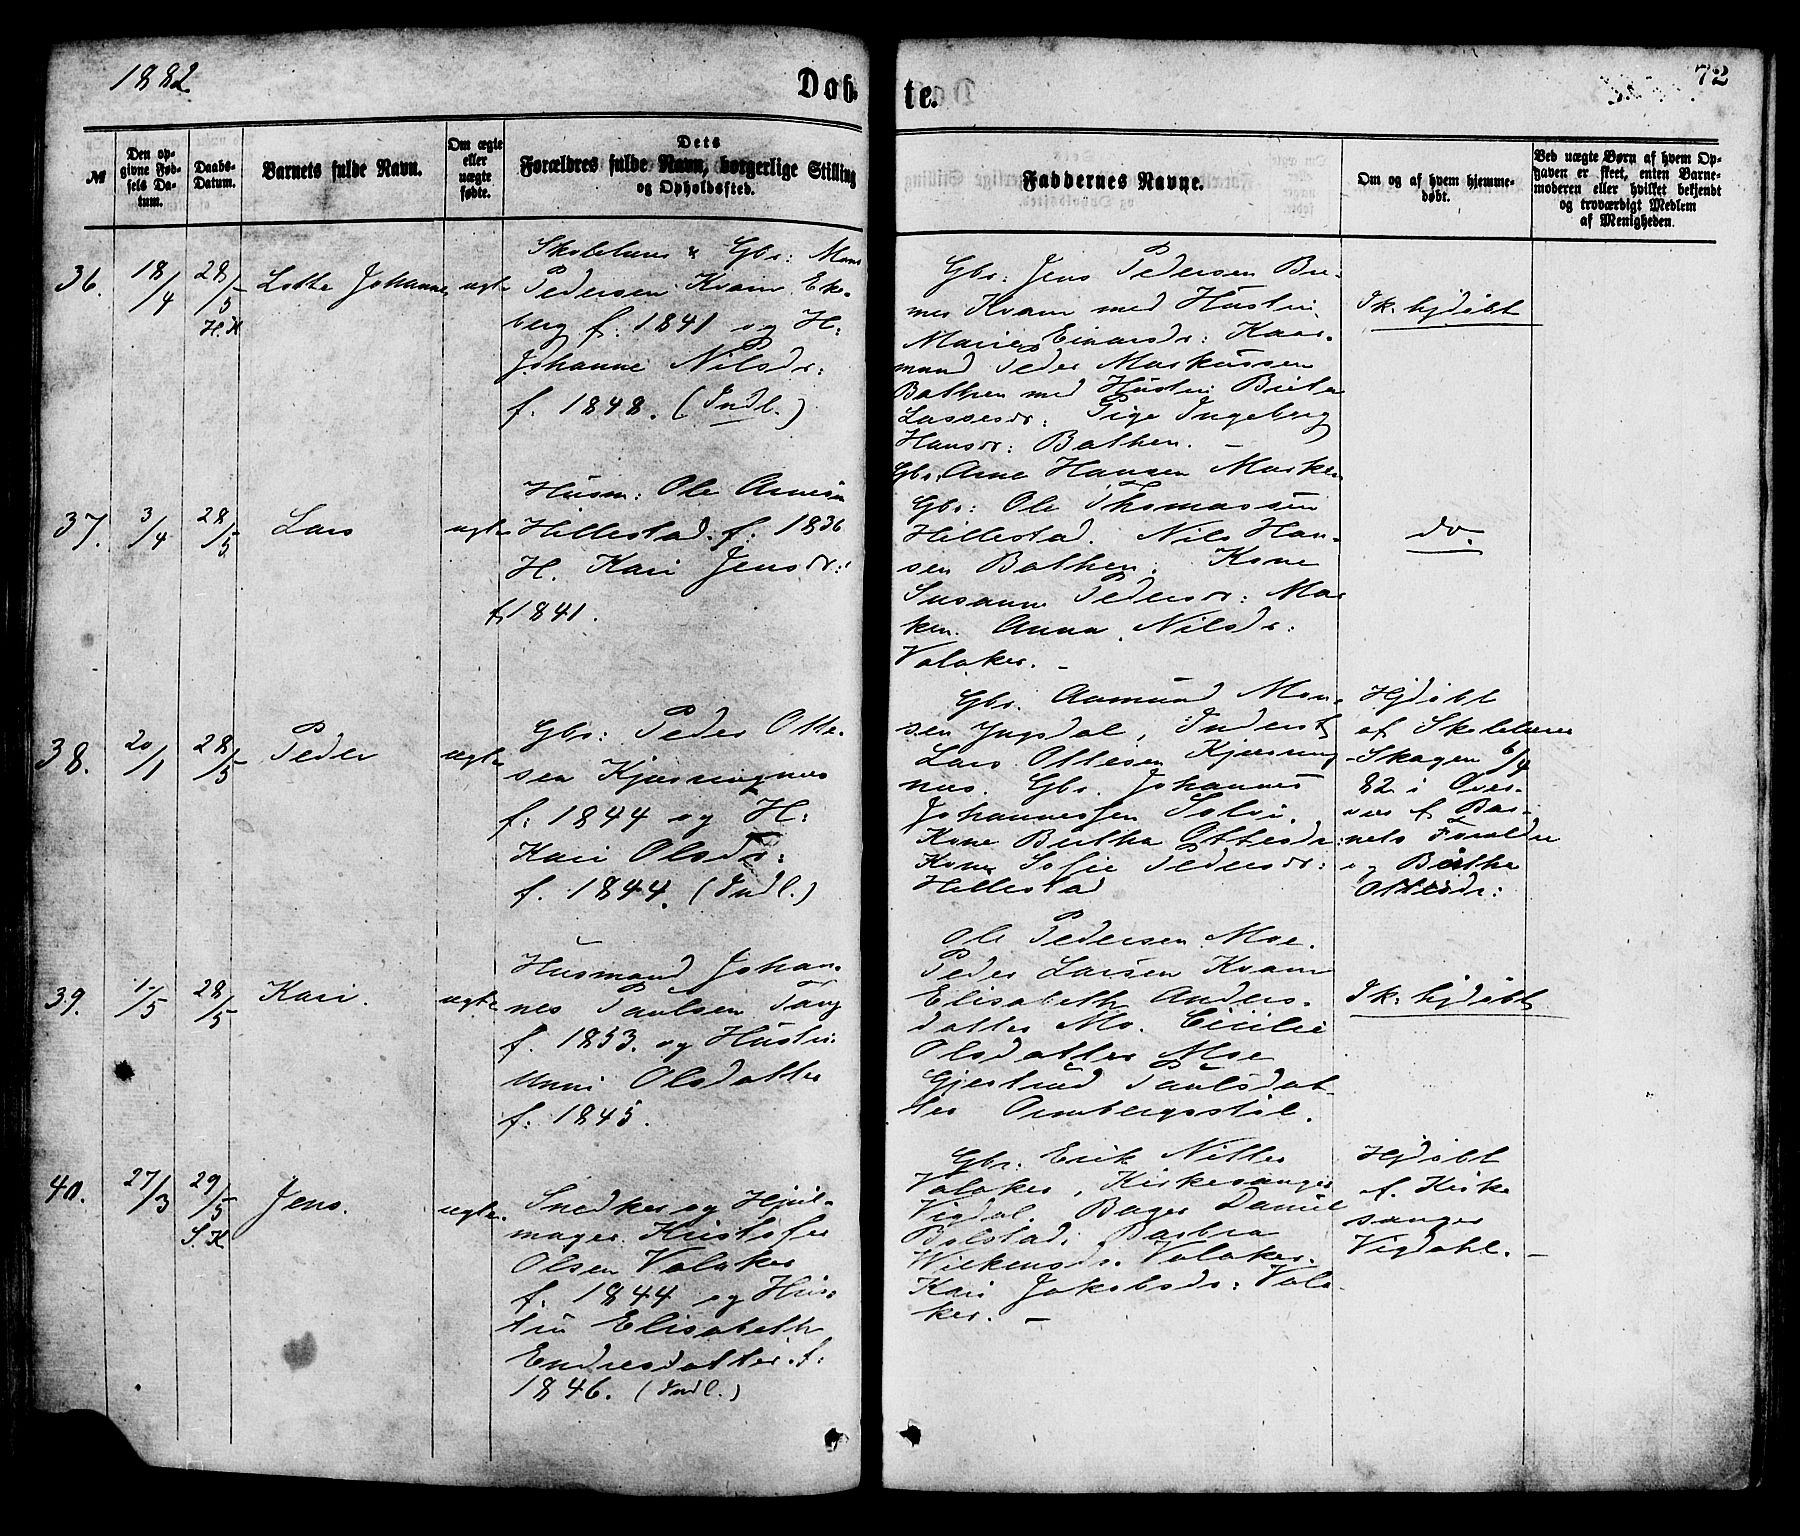 1882.
Døb-
te.
72
№
Den op-
givne Fød-
sels Da-
tum.
Daabs-
Datum.
Barnets fulde Navn.
Om ægte
eller
uægte
født.
Dets
Forældres fulde Navn, borgerlige Stilling
og Opholdssted.
Faddernes Navne.
Om og af hvem hjemme-
døbt.
Ved uægte Børn af hvem Op-
gaven er skeet, enten Barne-
moderen eller hvilket bekjendt
og troværdigt Medlem
af Menigheden.
36.
18/4
28/5
H.K
Lotte Johanne
ægte
Skolelærer & Gbr: Mons
Pedersen Kvam Ek-
berg f. 1841 og H:
Johanne Nilsdr:
f. 1848. (Indl.)
Gbr: Jens Pedersen Bre-
mer Kvam med Hustru
Marie Einarsdr: Kaar-
mand Peder Markussen
Bathen med Hustru Brita
Lassesdr: Pige Ingeberg
Hansdr: Bathen. -
Ik. hjdøbt
37.
3/4
28/5
Lars
ægte
Husm: Ole Arnesen
Hillestad. f: 1836
H. Kari Jensdr:
f 1841.
Gbr. Arne Hansen Masken
Gbr: Ole Thomassen
Hillestad. Nils Han-
sen Bathen. Kone
Susanne Pedersdr: Mas
ken. Anna Nilsdr:
Valaker. -
do.
38.
20/1
28/5
Peder
ægte
Gbr: Peder Otte-
sen Kjærringnes
f: 1844 og H:
Kari Olsdr:
f. 1844. (Indl.)
Gbr. Aamund Mon-
sen Ingsdal, Inderst
Lars Ottesen Kjærring
nes. Gbr. Johannes
Johannessen Solvi.
Kone Bertha Ottesdr:
Kone Sofie Pedersdr:
Hillestad
Hjdøbt
af Skolelærer
Skagen 6/4
82 i Over-
vær af Bar-
nets Forældre
og Bertha
Ottesdr:
39.
10/5
28/5
Kari.
ægte
Husmand Johan-
nes Paulsen Tang
f. 1853. og Hustru
Unni Olsdatter
f: 1845.
Ole Pedersen Moe.
Peder Larsen Kvam
Elisabeth Anders-
datter Mo. Cicilie
Olsdatter Moe
Gjertrud Paulsdat-
ter Ornbergsstøl.
Ik. hjdøbt
40.
27/3
29/5
S.K
Jens.
ægte.
Snedker og Hjul-
mager Kristofer
Olsen Valaker
f. 1844 og Hus-
tru Elisabeth
Endresdatter. f:
1846. (Indl.)
Gbr. Erik Nitter
Valaker, Kirkesanger
Vigdal. Bager Daniel
Bolstad, Barbra
Wilkensdr. Valaker.
Kari Jakobsdr: Vala-
ker. -
Hjdøbt
f. Kirke
sanger
Vigdahl. -